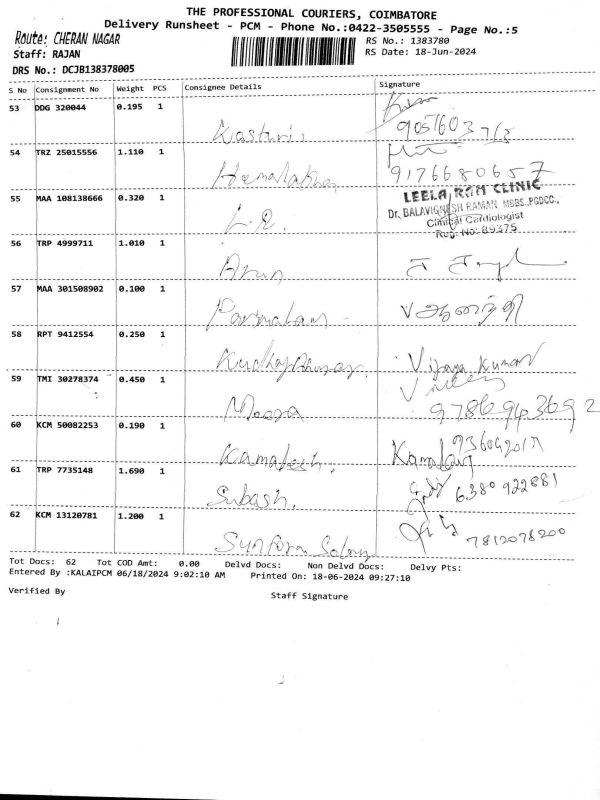 THE PROFESSIONAL COURIERS, COIMBATORE
Delivery Runsheet - PCM - Phone No.:0422-3505555 - Page No.:5
Route: CHERAN NAGAR
RS No.: 1383780
Staff: RAJAN
RS Date: 18-Jun-2024
DRS No.: DCJB138378005
S No Consignment No Weight PCS Consignee Details Signature
53 DDG 320044 0.195 1
Kasturi
54 TRZ 25015556 1.110 1
9176680657
55 MAA 108138666 0.320 1
LEELA RAM CLINIC
Dr. BALAVIGNESH RAMAN MBBS.,PGDCC.,
Clinical Cardiologist
Reg. No: 89375
L.R.
56 TRP 4999711 1.010 1
Arun
57 MAA 301508902 0.100 1
ஆனந்தி
58 RPT 9412554 0.250 1
Vijaya Kumar
59 TMI 30278374 0.450 1
9786943692
60 KCM 50082253 0.190 1
Kamalesh.
61 TRP 7735148 1.690 1
Subash. 6380 922881
62 KCM 13120781 1.200 1
7812078200
Tot Docs: 62 Tot COD Amt: 0.00 Delvd Docs: Non Delvd Docs: Delvy Pts:
Entered By :KALAIPCM 06/18/2024 9:02:10 AM Printed On: 18-06-2024 09:27:10
Verified By
Staff Signature